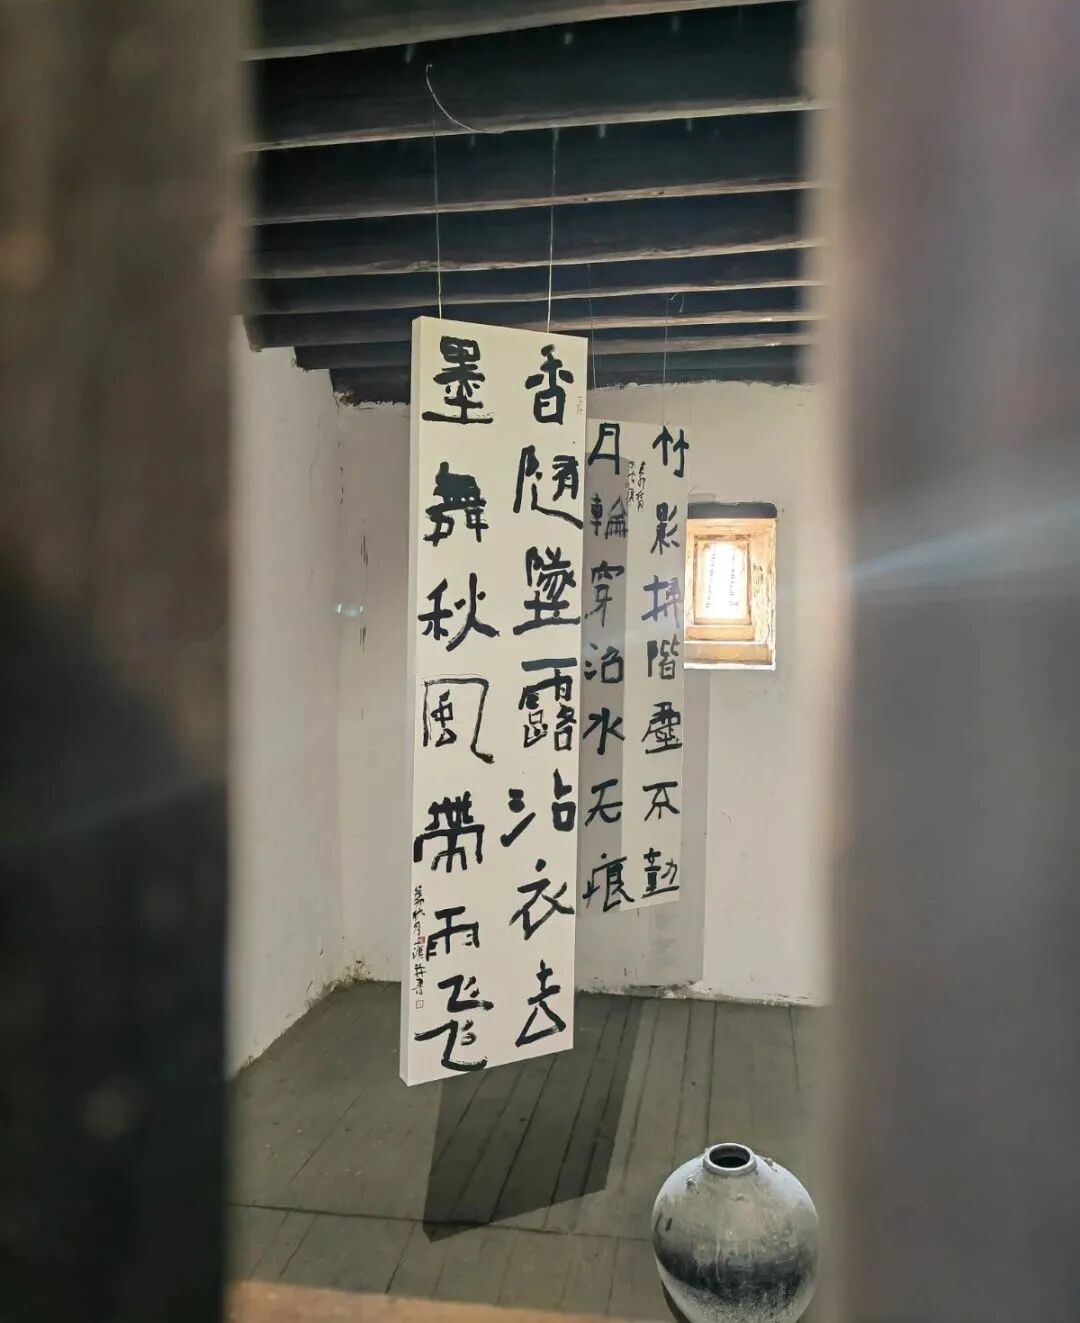 香隨墜露沾衣去
墨舞秋風帶雨飛
竹影掃階塵不動
月輪穿沼水无痕